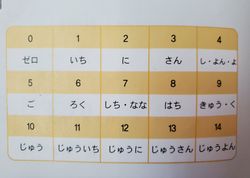 0 1 2 3 4
ゼロ いち に さん し・よん・よ
5 6 7 8 9
ご ろく しち・なな はち きゅう・く
10 11 12 13 14
じゅう じゅういち じゅうに じゅうさん じゅうよん